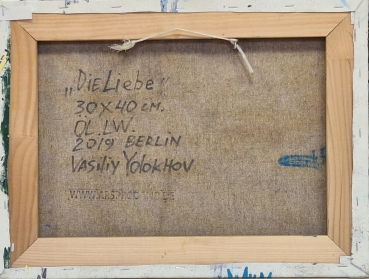 „Die Liebe"
30x40 cm.
ÖL. LW.
2019 BERLIN
VASiLiY YOLOKHOV